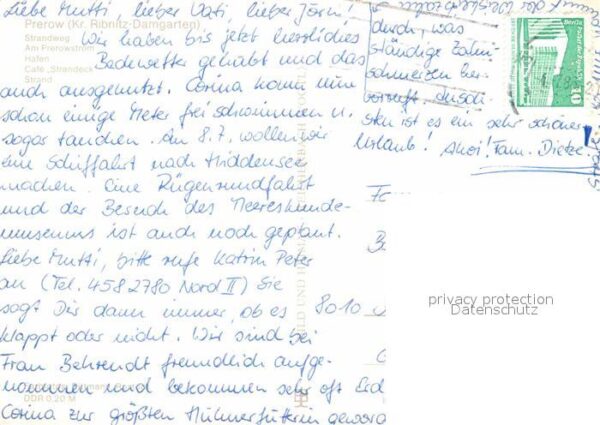 Liebe Mutti, lieber Vati, lieber Jörn!
Prerow (Kr. Ribnitz-Damgarten)
Strandweg
Am Prerowstrom
Hafen
Café „Strandeck“
Strand
Wir haben bis jetzt herrliches
Badewetter gehabt und das
auch ausgenutzt. Corina kann nun
schon einige Meter frei schwimmen u.
sogar tauchen. Am 8.7. wollen wir
eine Schiffahrt nach Hiddensee
machen. Eine Rügenrundfahrt
und der Besuch des Meereskunde-
museums ist auch noch geplant.
Liebe Mutti, bitte rufe Katrin Peter
an (Tel. 458 2780 Nord II) Sie
sagt Dir dann immer, ob es
klappt oder nicht. Wir sind bei
Frau Behrendt freundlich aufge-
nommen und bekommen sehr oft Erd
DDR 0,20 M
Corina zur größten Hühnerfütterin geword
BILD UND HEIMAT
durch, was
ständige Zahn-
schmerzen her-
vorruft. Anson-
sten ist es ein sehr schöner
Urlaub! Ahoi! Fam. Dietze!
Berlin
DDR
10
8010
privacy protection
Datenschutz